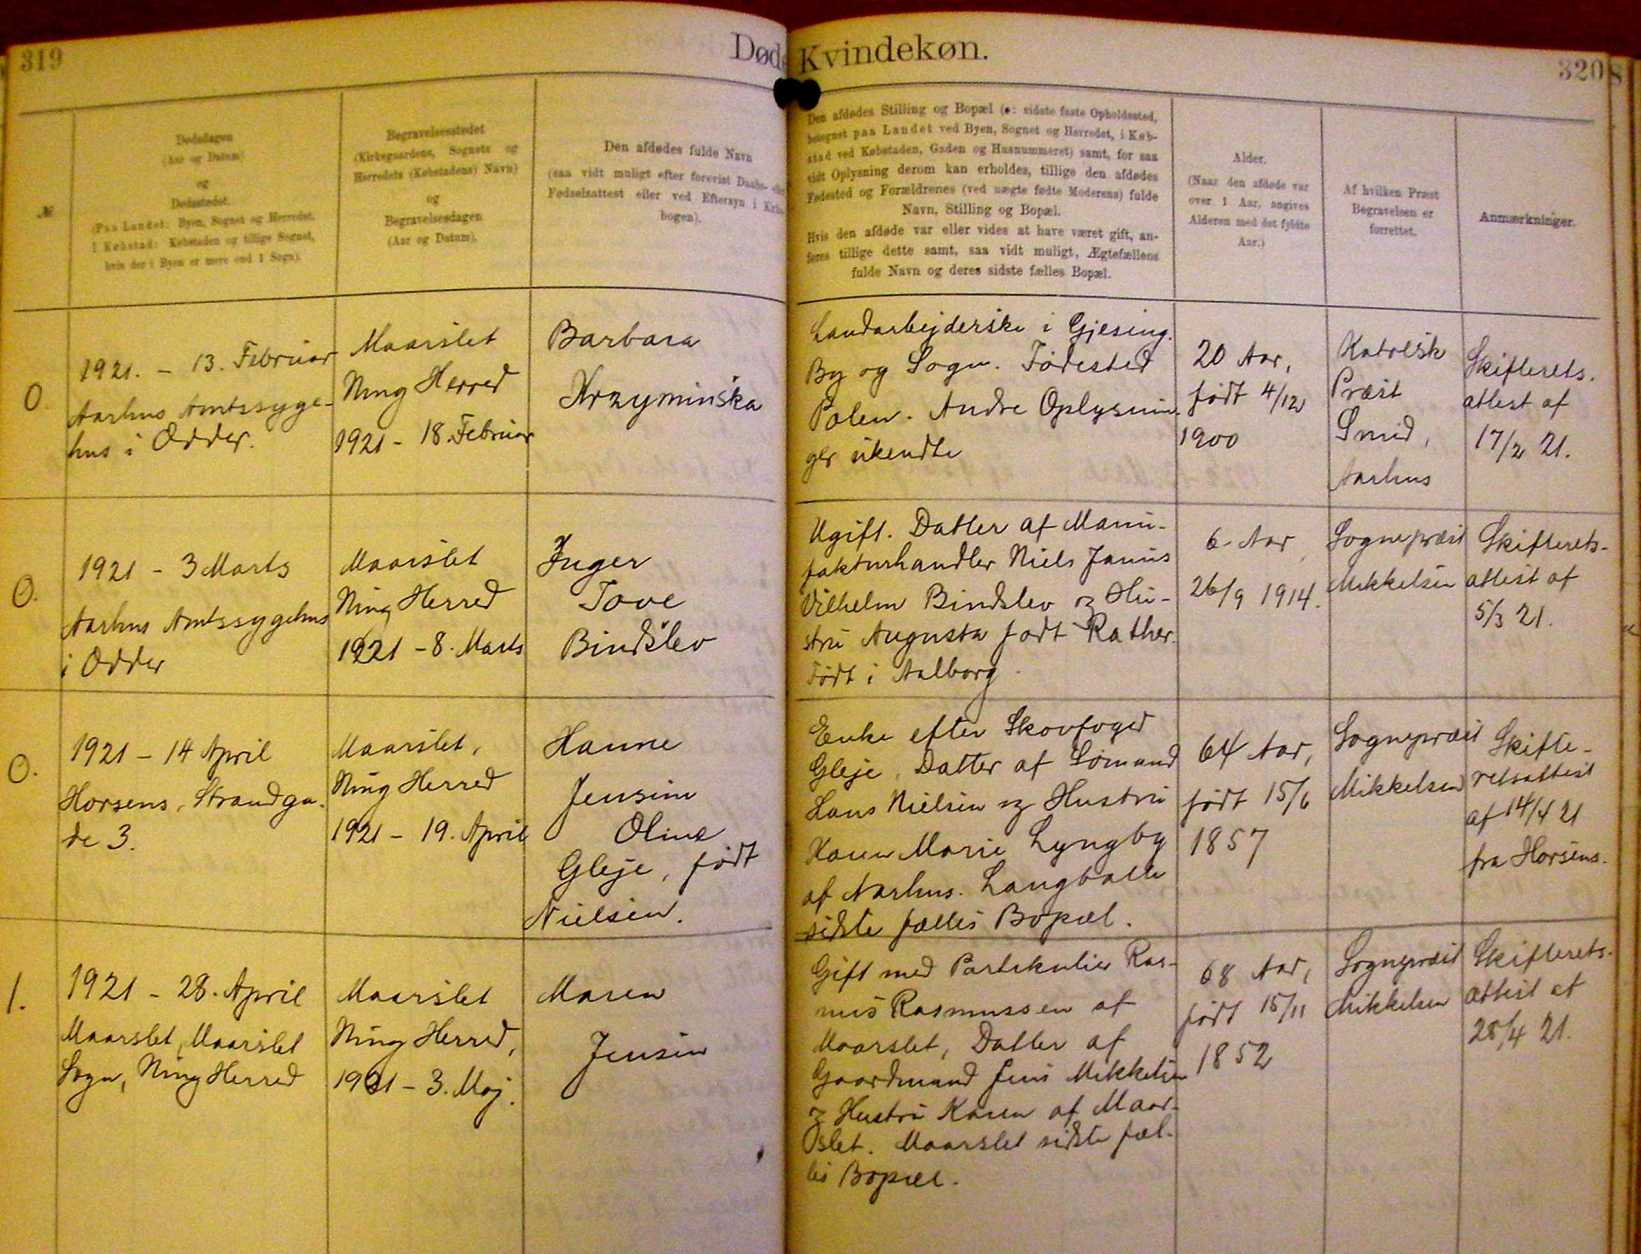 319
Døde
Kvindekøn.
320
№
Dødsdagen
(Aar og Datum)
og
Dødsstedet.
(Paa Landet: Byen, Sognet og Herredet,
i Købstad: Købstaden og tillige Sognet,
hvis der i Byen er mere end 1 Sogn).
Begravelsesstedet
(Kirkegaardens, Sognets og
Herredets (Købstadens) Navn)
og
Begravelsesdagen
(Aar og Datum).
Den afdødes fulde Navn
(saa vidt muligt efter forevist Daabs- eller
Fødselsattest eller ved Eftersyn i Kirke-
bogen).
Den afdødes Stilling og Bopæl (ɔ: sidste faste Opholdssted,
betegnet paa Landet ved Byen, Sognet og Herredet, i Køb-
stad ved Købstaden, Gaden og Husnummeret) samt, for saa
vidt Oplysning derom kan erholdes, tillige den afdødes
Fødested og Forældrenes (ved uægte fødte Moderens) fulde
Navn, Stilling og Bopæl.
Hvis den afdøde var eller vides at have været gift, an-
føres tillige dette samt, saa vidt muligt, Ægtefællens
fulde Navn og deres sidste fælles Bopæl.
Alder.
(Naar den afdøde var
over 1 Aar, angives
Alderen med det fyldte
Aar.)
Af hvilken Præst
Begravelsen er
forrettet.
Anmærkninger.
O.
1921. – 13. Februar
Aarhus Amtssyge-
hus i Odder.
Maarslet
Ning Herred
1921 – 18. Februar
Barbara
Krzyminska
Landarbejderske i Gjesing
By og Sogn. Fødested
Polen. Andre Oplysnin-
ger ukendte
20 Aar,
født 4/12
1900
Katolsk
Præst
Smid,
Aarhus
Skifterets-
attest af
17/2 21.
O.
1921 – 3 Marts
Aarhus Amtssygehus
i Odder
Maarslet
Ning Herred
1921 – 8. Marts
Inger
Tove
Bindslev
Ugift. Datter af Manu-
fakturhandler Niels Janus
Vilhelm Bindslev og Hu-
stru Augusta født Rather.
Født i Aalborg.
6 Aar
26/9 1914.
Sognepræst
Mikkelsen
Skifterets-
attest af
5/3 21.
O.
1921 – 14 April
Horsens, Strandga-
de 3.
Maarslet,
Ning Herred
1921 – 19. April
Hanne
Jensine
Oline
Gleje, født
Nielsen.
Enke efter Skovfoged
Gleje, Datter af Sømand
Hans Nielsen og Hustru
Karen Marie Lyngby
af Aarhus. Langballe
sidste fælles Bopæl.
64 Aar,
født 15/6
1857
Sognepræst
Mikkelsen
Skifte-
retsattest
af 14/4 21
fra Horsens.
1.
1921 – 28. April
Maarslet, Maarslet
Sogn, Ning Herred
Maarslet
Ning Herred,
1921 – 3. Maj.
Maren
Jensen
Gift med Partikulier Ras-
mus Rasmussen af
Maarslet, Datter af
Gaardmand Jens Mikkelsen
og Hustru Karen af Maar-
slet. Maarslet sidste fæl-
les Bopæl.
68 Aar,
født 15/11
1852
Sognepræst
Mikkelsen
Skifterets-
attest af
28/4 21.